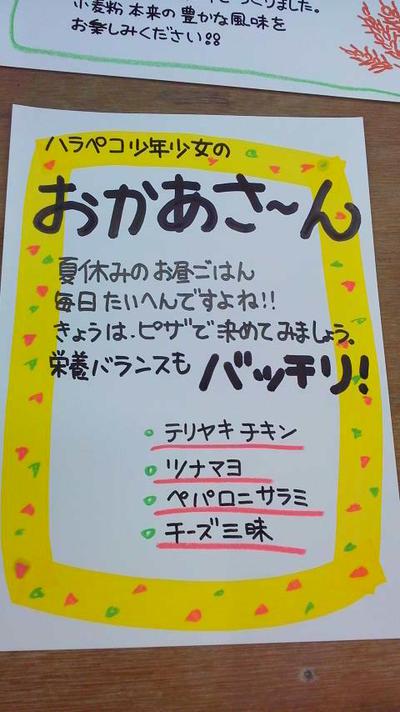 小麦粉本来の豊かな風味を
お楽しみください!!
ハラペコ少年少女の
おかあさ〜ん
夏休みのお昼ごはん
毎日たいへんですよね!!
きょうは、ピザで決めてみましょう。
栄養バランスもバッチリ!
テリヤキチキン
ツナマヨ
ペパロニサラミ
チーズ三昧